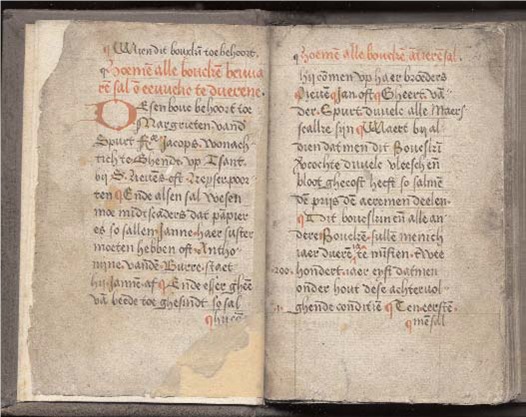 ¶ Wien dit bouxkin toe behoort.
¶ Hoemē alle bouckē bewa
rē sal ō eeuwich te duerene.
Desen bouc behoort toe
Margrieten vand
Spurt Jacops wonach
tich te Ghendt vp Tsant
bij S. Lieuēs oft Keyser poor
ten ¶ Ende alsen sal wesen
moe midts caders dat papier
es so sallen Janne haer suster
moeten hebben oft Antho
nine vandē Burre staet
hij Jannē af ¶ Ende esser gheē
vā beede toe ghesindt so sal
¶ hij cō
¶ Hoemē alle bouckē
hij comen vp haer broeders
Lieuē ¶ Jan oft ¶ Gheert vā
der Spurt duuele alle
sijn ¶ Waert bij al
dien datmen dit
duuele vleeschen
bloot ghecost heeft so salmē
dē prijs dē aermen deelen
¶ Dit bouxkin en alle an
dere Bouckē sullē menich
iaer duerē te minsten twee
200. hondert iaer eyst datmen
onder hout dese achteruol
1. ghende conditiē ¶ Ten eerstē
¶ mē sal